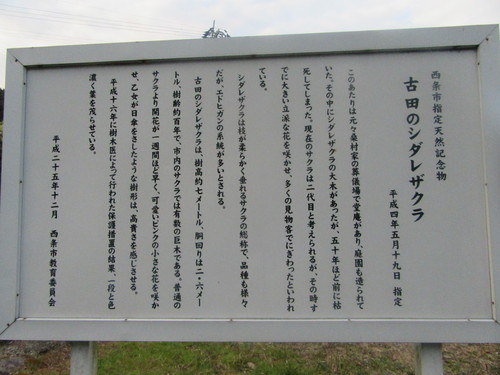 西条市指定天然記念物
古田のシダレザクラ
平成四年五月十九日 指定
このあたりは元々桑村家の葬儀場で堂庵があり、庭園も造られて
いた。その中にシダレザクラの大木があったが、五十年ほど前に枯
死してしまった。現在のサクラは二代目と考えられるが、その時す
でに大きい立派な花を咲かせ、多くの見物客でにぎわったといわれ
ている。
シダレザクラは枝が柔らかく垂れるサクラの総称で、品種も様々
だが、エドヒガンの系統が多いとされる。
古田のシダレザクラは、樹高約七メートル、胴回りは二・六メー
トル、樹齢約百年で、市内のサクラでは有数の巨木である。普通の
サクラより開花が一週間ほど早く、可愛いピンクの小さな花を咲か
せ、乙女が日傘をさしたような樹形は、高貴さを感じさせる。
平成十六年に樹木医によって行われた保護措置の結果、一段と色
濃く葉を茂らせている。
平成二十五年十二月 西条市教育委員会